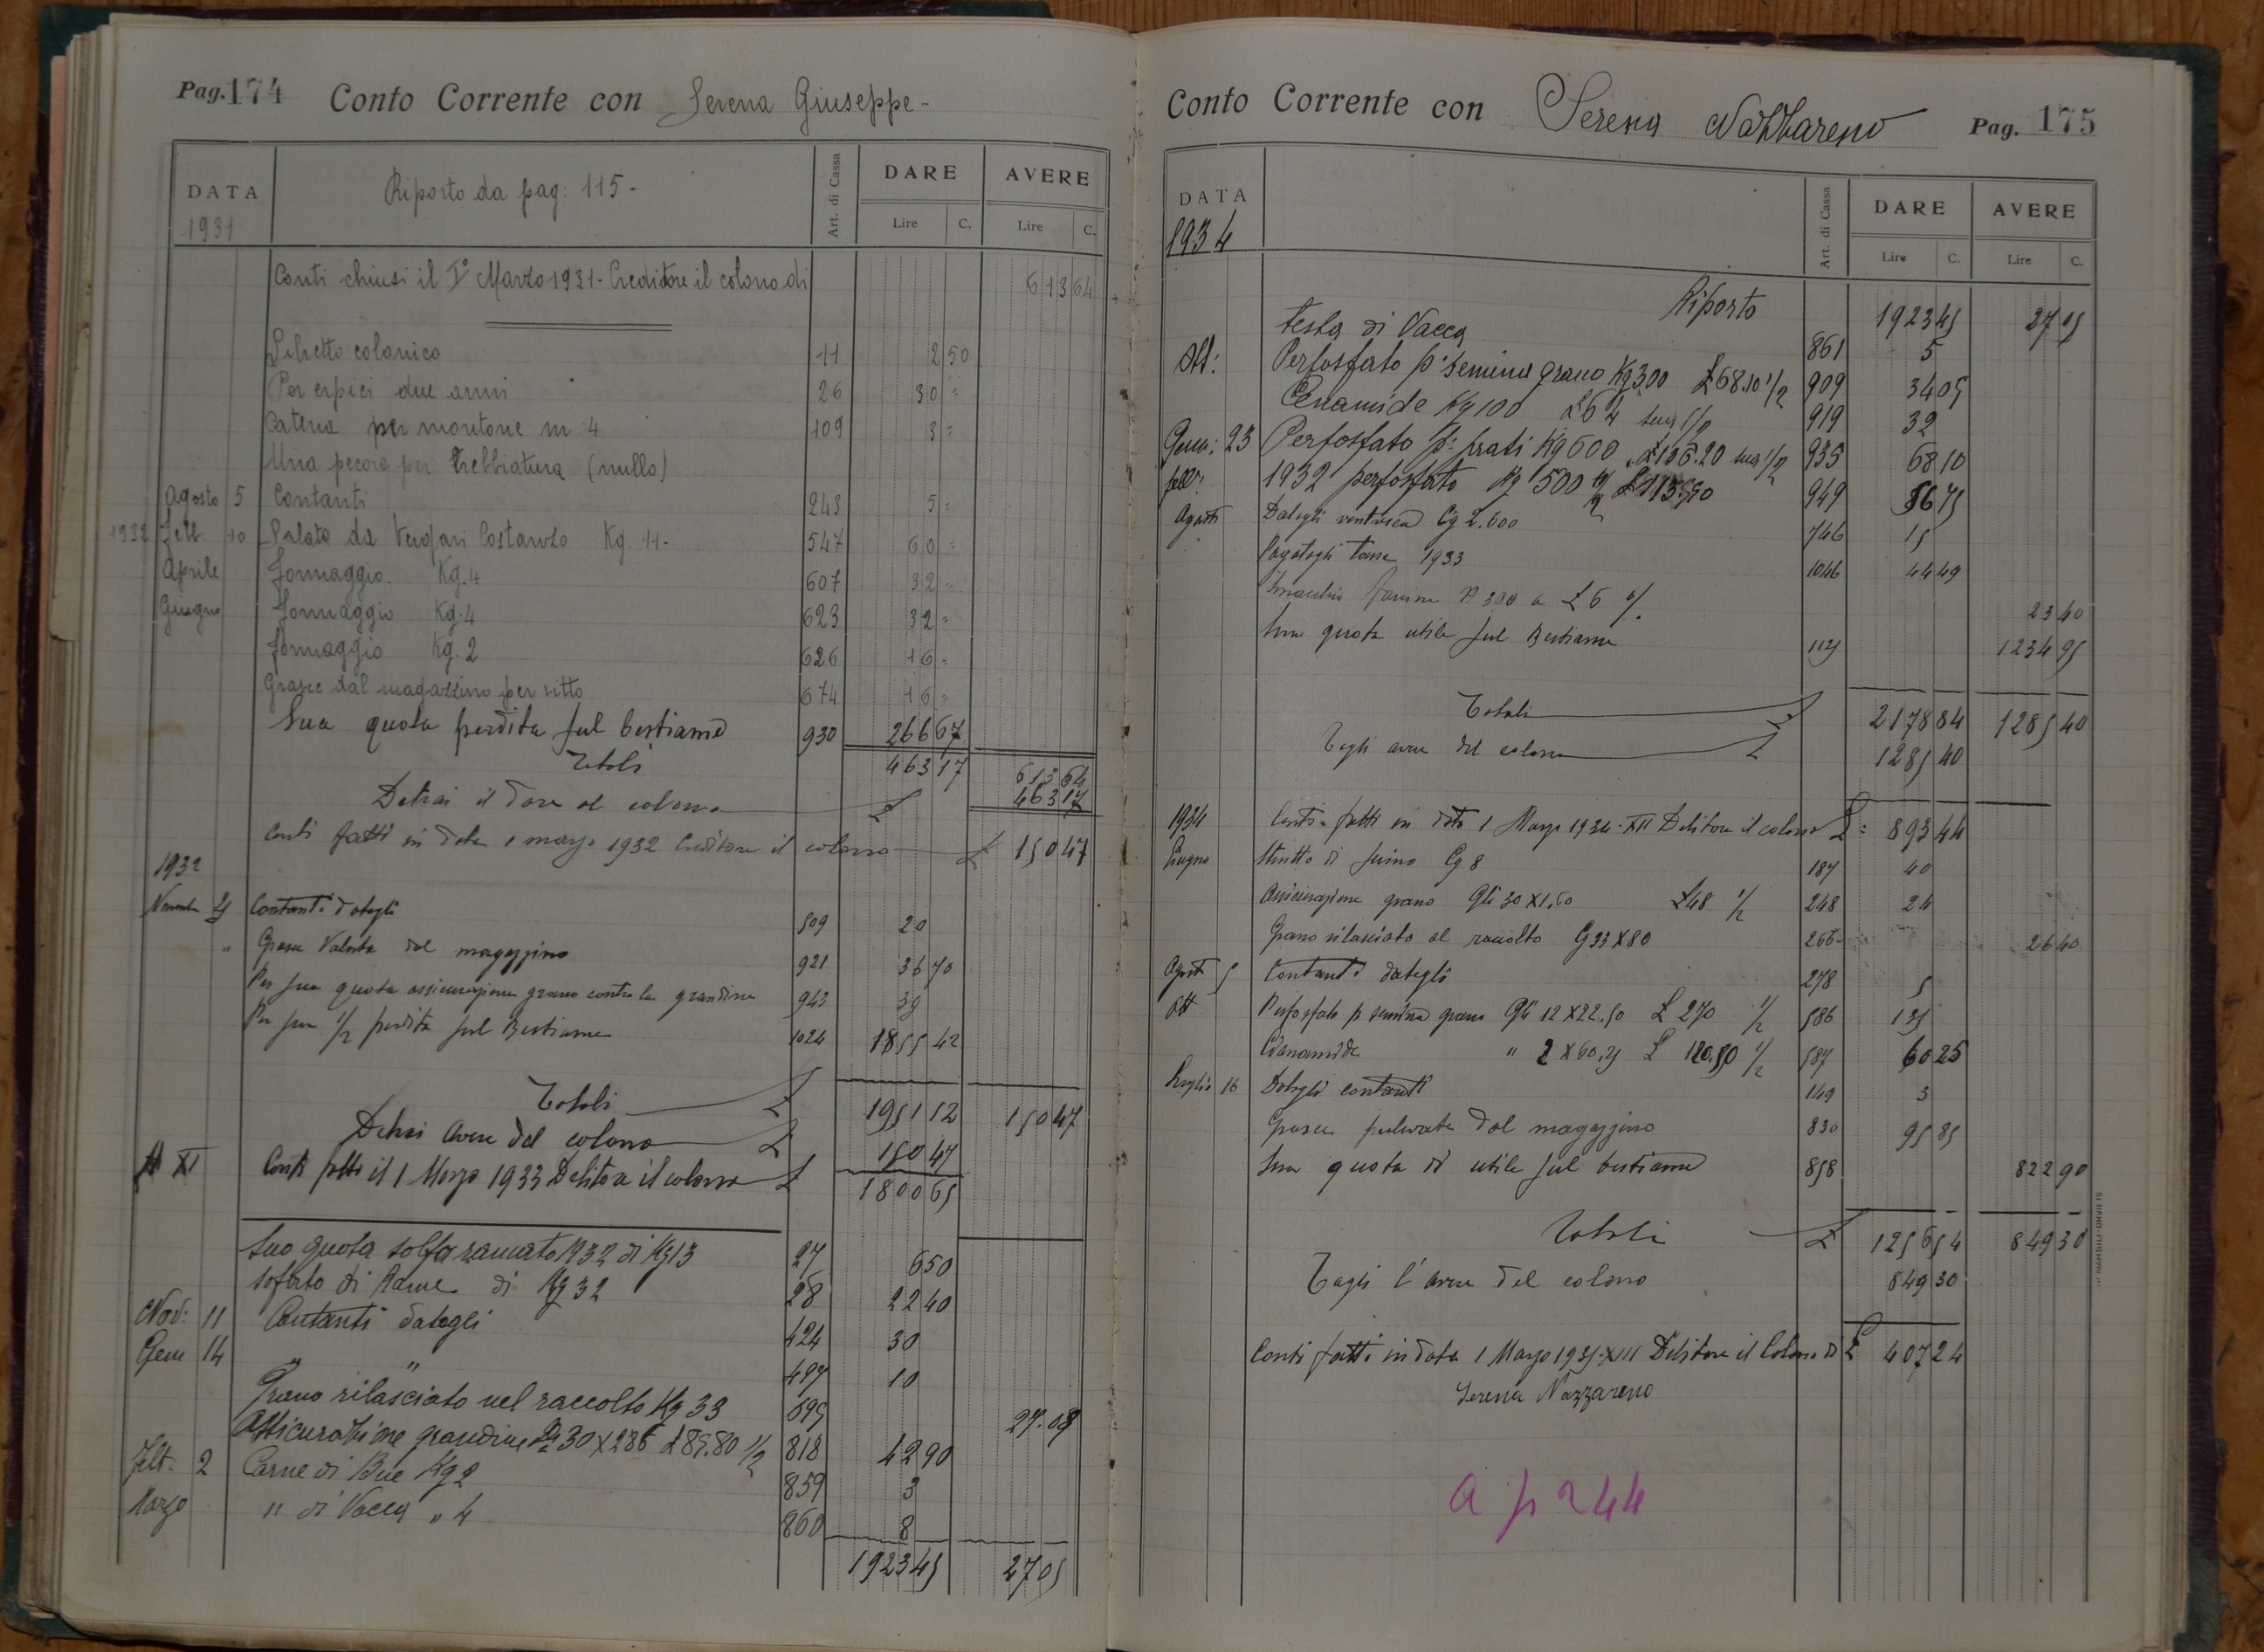 Pag. 174 Conto Corrente con Serena Giuseppe -
DATA
1931
Riporto da pag: 115 -
Art. di Cassa
DARE
AVERE
Lire C. Lire C.
Conti chiusi il I° Marzo 1931 - Creditore il colono di 613 64
Libretto colonico 11 2 50
Per erpici due anni 26 30 =
Catena per montone m 4 109 3 =
Una pecora per trebbiatura (nullo)
Agosto 5 Contanti 243 5 =
1932 Febb. 10 Salato da Costanzo Kg. 11 - 547 60 =
Aprile formaggio. Kg. 4 607 32 =
Giugno formaggio Kg. 4 623 32 =
formaggio Kg. 2 626 16 =
Grasce dal magazzino per vitto 674 16 =
Sua quota perdita sul bestiame 930 266 67
Totali 463 17 613 64
Detrai il dare al colono £ 463 17
Conti fatti in data 1 marzo 1932 Creditore il colono £ 150 47
1932
Novembre 25 Contanti dategli 509 20
" Grasce Valuta dal magazzino 921 36 70
Per sua quota assicurazione grano contro la grandine 942 39
Per sua 1/2 perdita sul Bestiame 1024 1855 42
Totali £ 1951 12 150 47
Detrai Avere del colono £ 150 47
A XI Conti fatti il 1 Marzo 1933 Debitore il colono £ 1800 65
Suo quota solfo ramato 1932 di Kg 13 27 6 50
solfato di Rame di Kg 32 28 22 40
Nov: 11 Contanti dategli 424 30
Genn 14 " " 497 10
Grano rilasciato nel raccolto Kg 33 695 27.05
Assicurazione grandine 30 x 286 £ 85.80 1/2 818 42 90
Febb. 2 Carne di Bue Kg 2 859 3
Marzo " di Vacca " 4 860 8
1923 45 27 05
Conto Corrente con Serena Nazzareno Pag. 175
DATA
1934
Art. di Cassa
DARE
AVERE
Lire C. Lire C.
Riporto 1923 45 27 05
testa di Vacca 861 5
Ott: Perfosfato p. semina grano Kg 300 £ 68.10 1/2 909 34 05
Cenamide Kg 100 £ 64 sua 1/2 919 32
Genn: 23 Perfosfato p: prati Kg 600 £ 136.20 sua 1/2 935 68 10
febb: 1932 perfosfato Kg 500 949 56 75
Agosto Dategli Cg 2.600 746 15
Pagatogli tasse 1933 1046 44 49
farina 390 a £ 6 % 23 40
Sua quota utile sul Bestiame 1125 1234 95
Totali £ 2178 84 1285 40
Togli avere del colono £ 1285 40
1934 Conti fatti in data 1 Marzo 1934 - XII Debitore il colono £ = 893 44
Giugno Strutto di suino Cg 8 187 40
Assicurazione grano Qli 30 x 1,60 £ 48 1/2 248 24
Grano rilasciato al raccolto Cg 33 x 80 266 26 40
Agosto 5 Contanti dategli 278 5
Ott Perfosfato p semina grano Qli 12 x 22.50 £ 270 1/2 586 135
Cianamide " 2 x 60,25 £ 120.50 1/2 587 60 25
Luglio 16 Dategli contanti 149 3
Grasce prelevate dal magazzino 830 95 85
Sua quota di utile sul bestiame 858 822 90
Totali £ 1256 54 849 30
Togli l'avere del colono 849 30
Conti fatti in data 1 Marzo 1935 - XIII Debitore il Colono di £ 407 24
Serena Nazzareno
a p 244